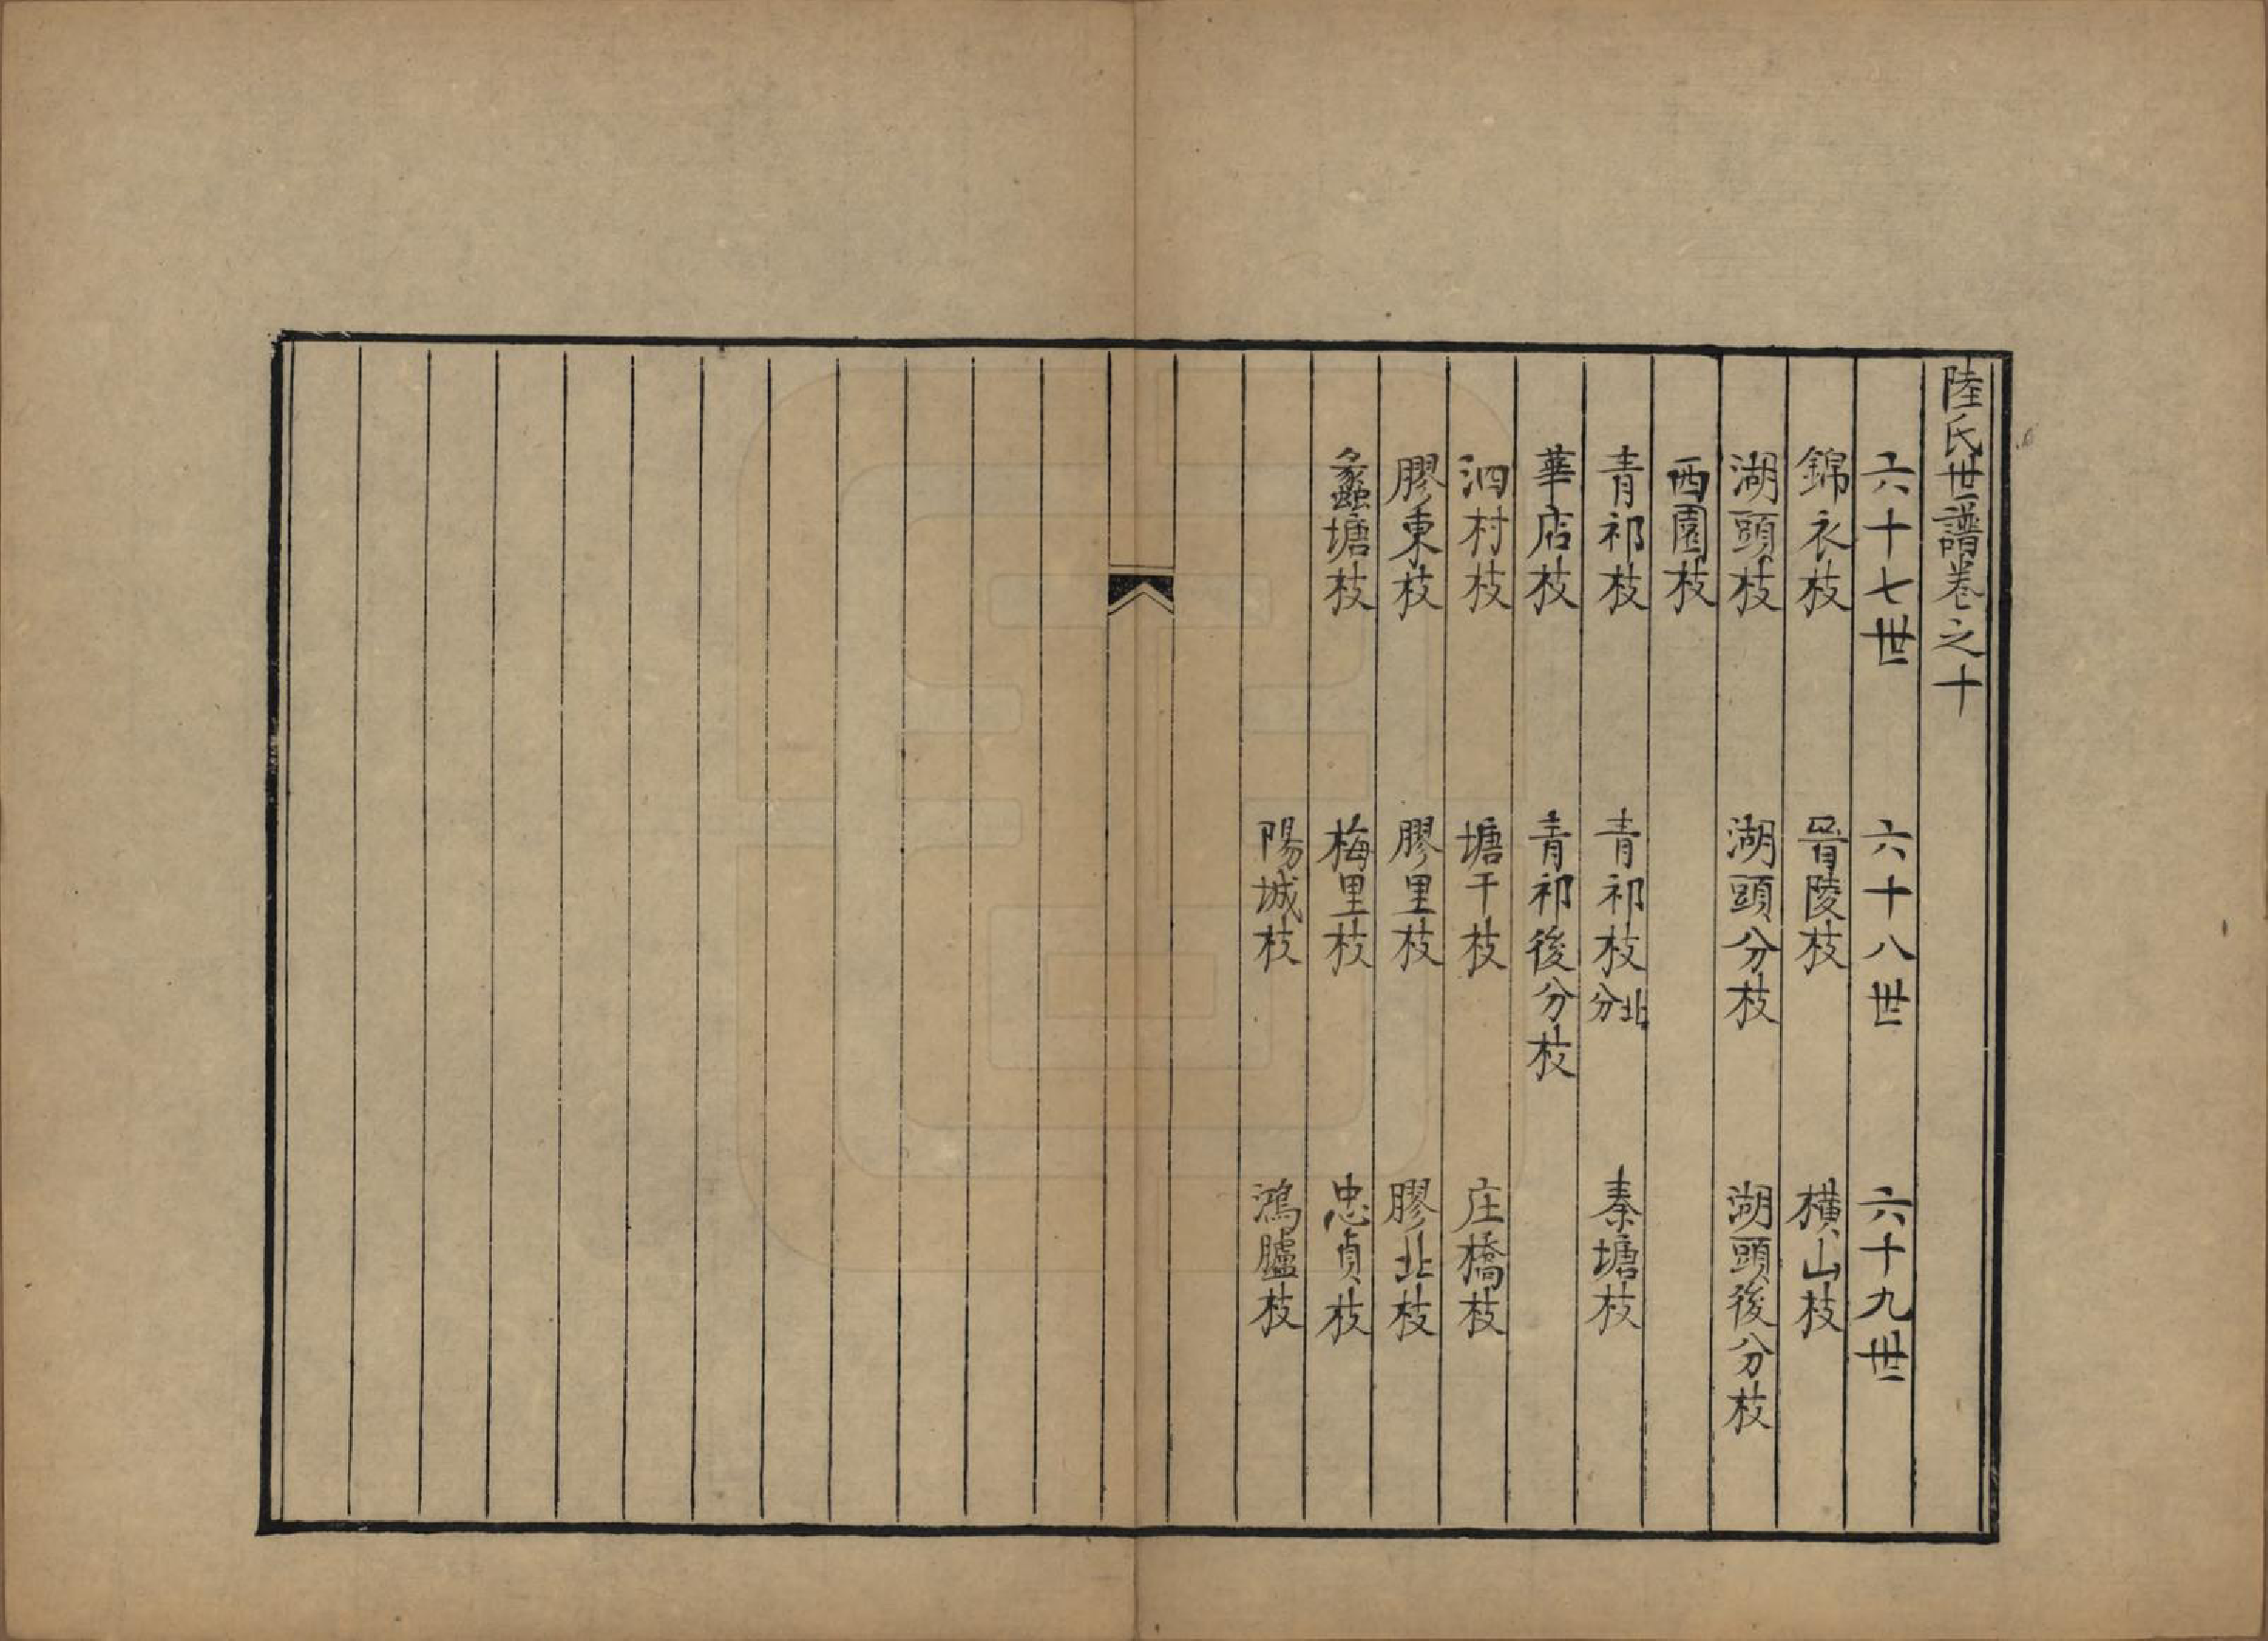 陸氏世譜卷之十
六十七世 六十八世 六十九世
錦衣枝 晉陵枝 橫山枝
湖頭枝 湖頭分枝 湖頭後分枝
西園枝
青祁枝 青祁枝北分 秦塘枝
華店枝 青祁後分枝
泗村枝 塘干枝 庄橋枝
膠東枝 膠里枝 膠北枝
蠡塘枝 梅里枝 忠貞枝
陽城枝 鴻臚枝